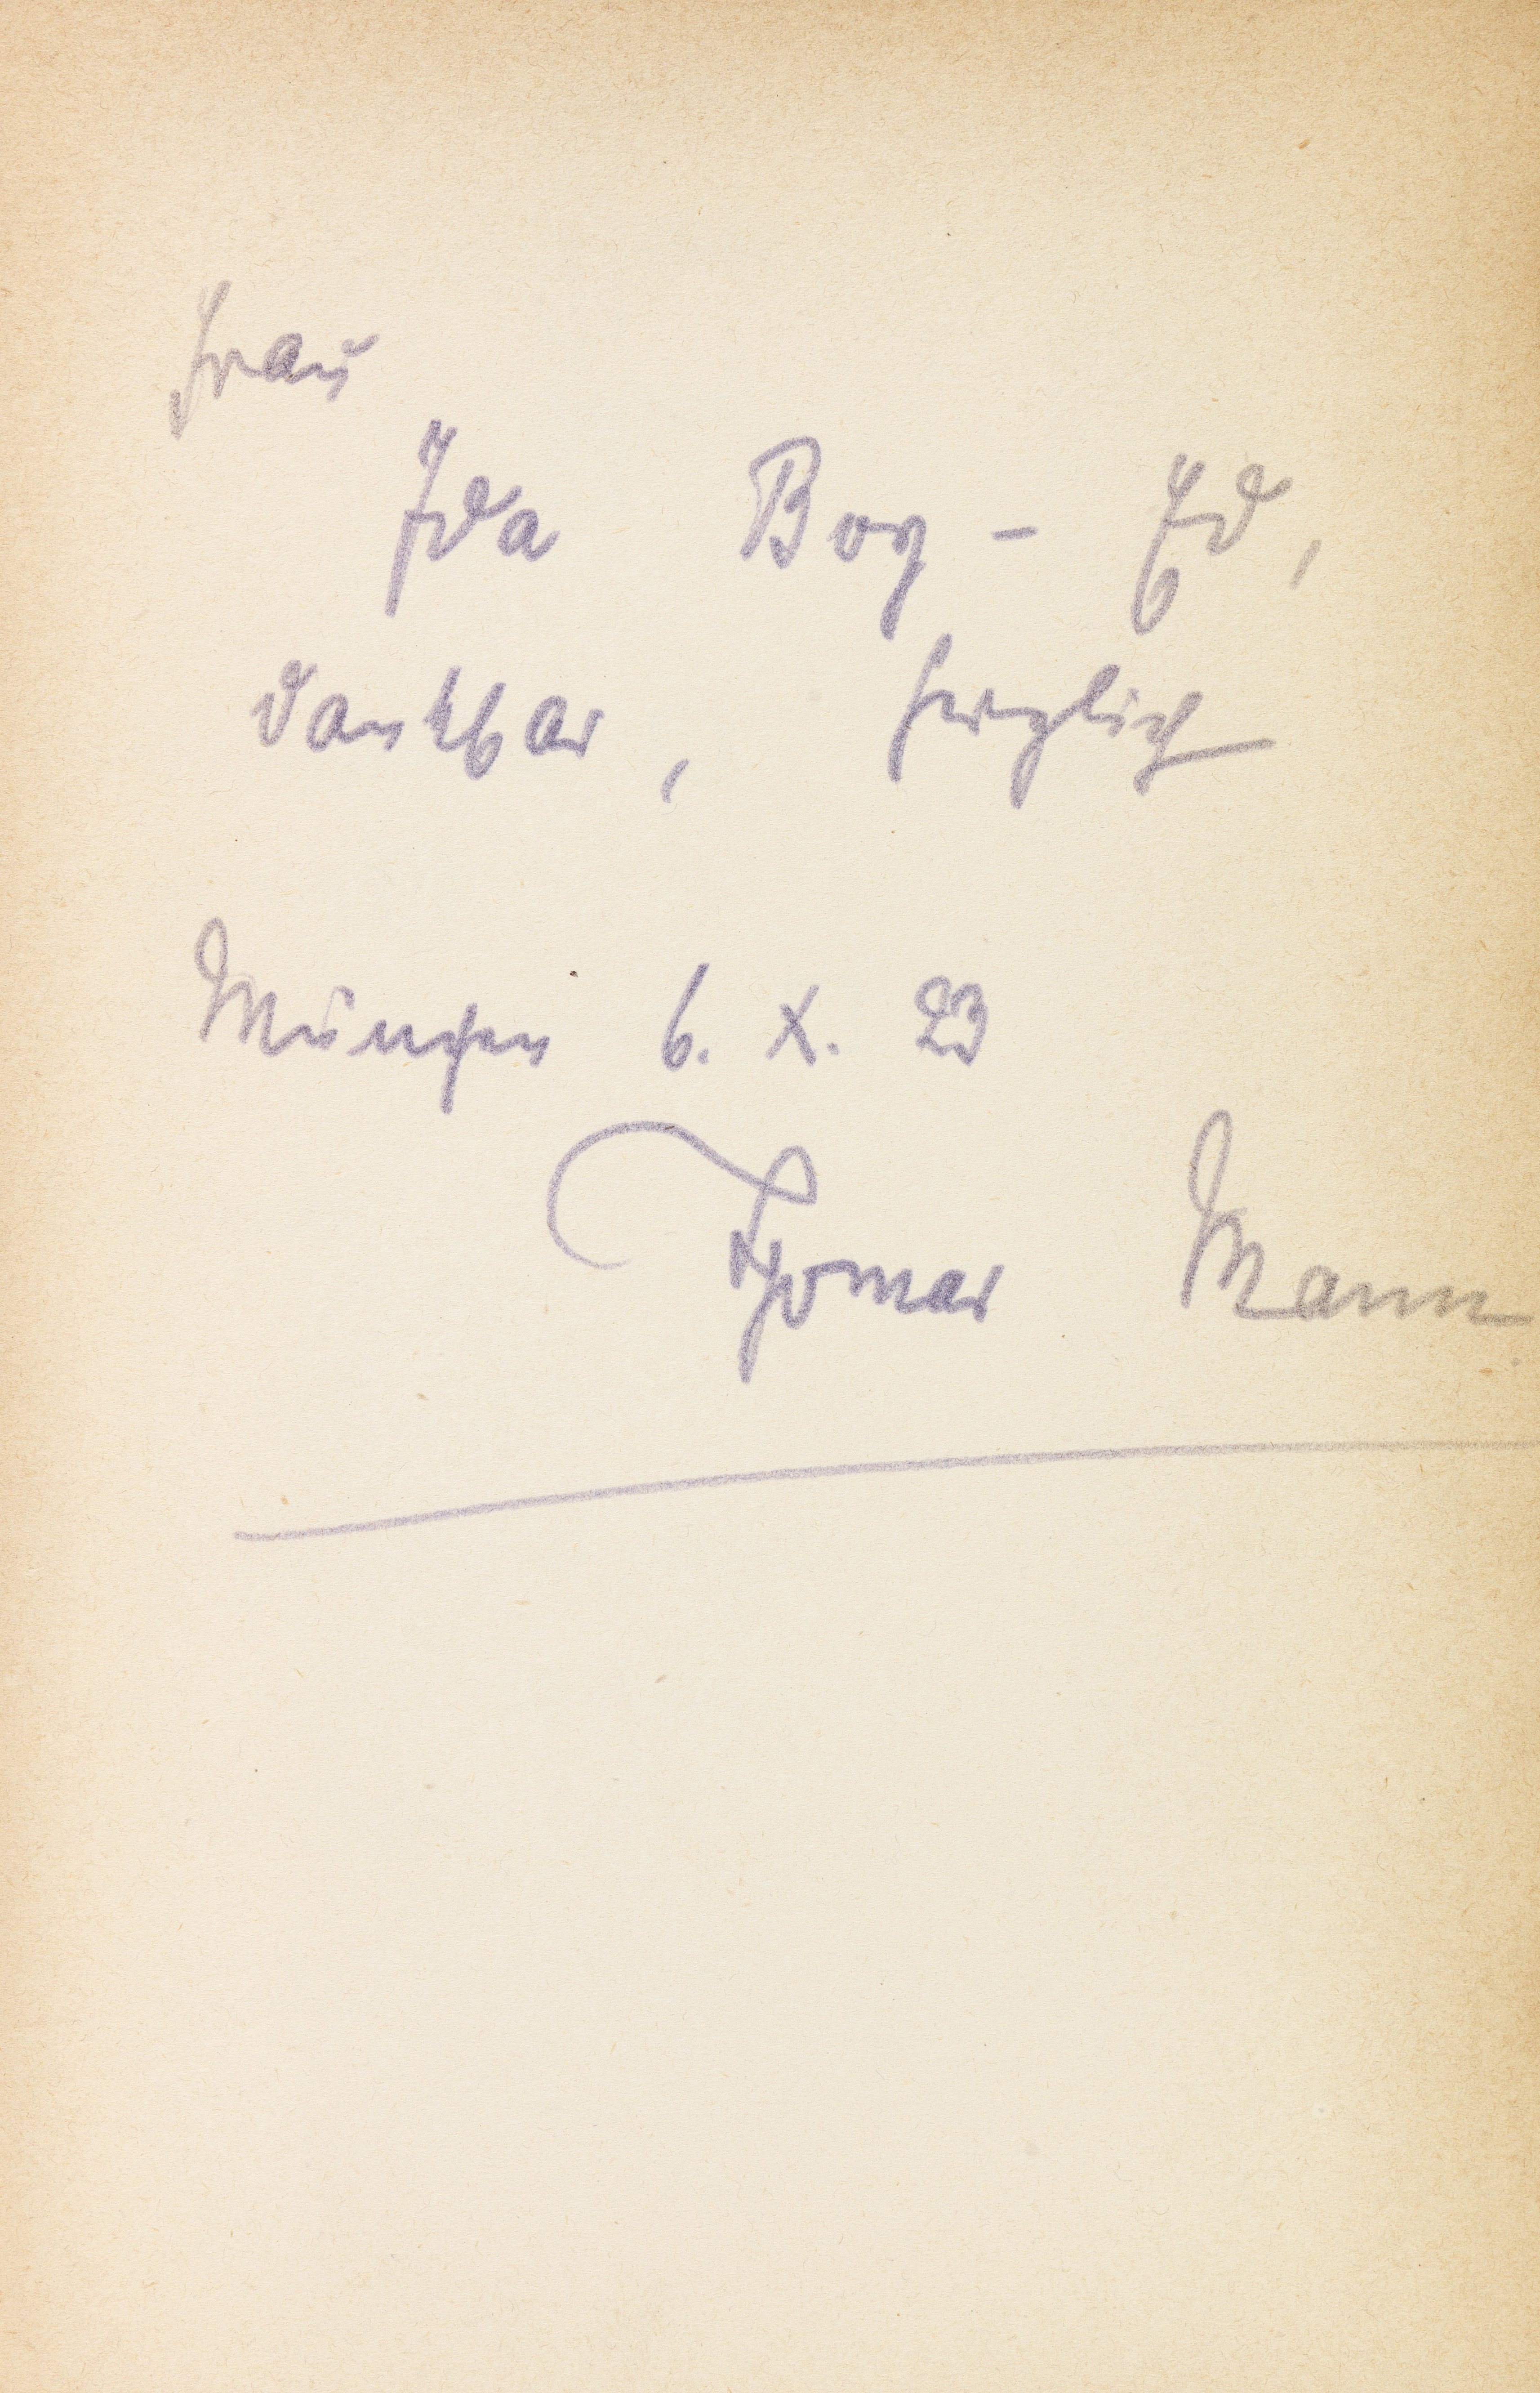 Frau
Ida Boy-Ed,
dankbar, herzlich
München 6. X. 23
Thomas Mann